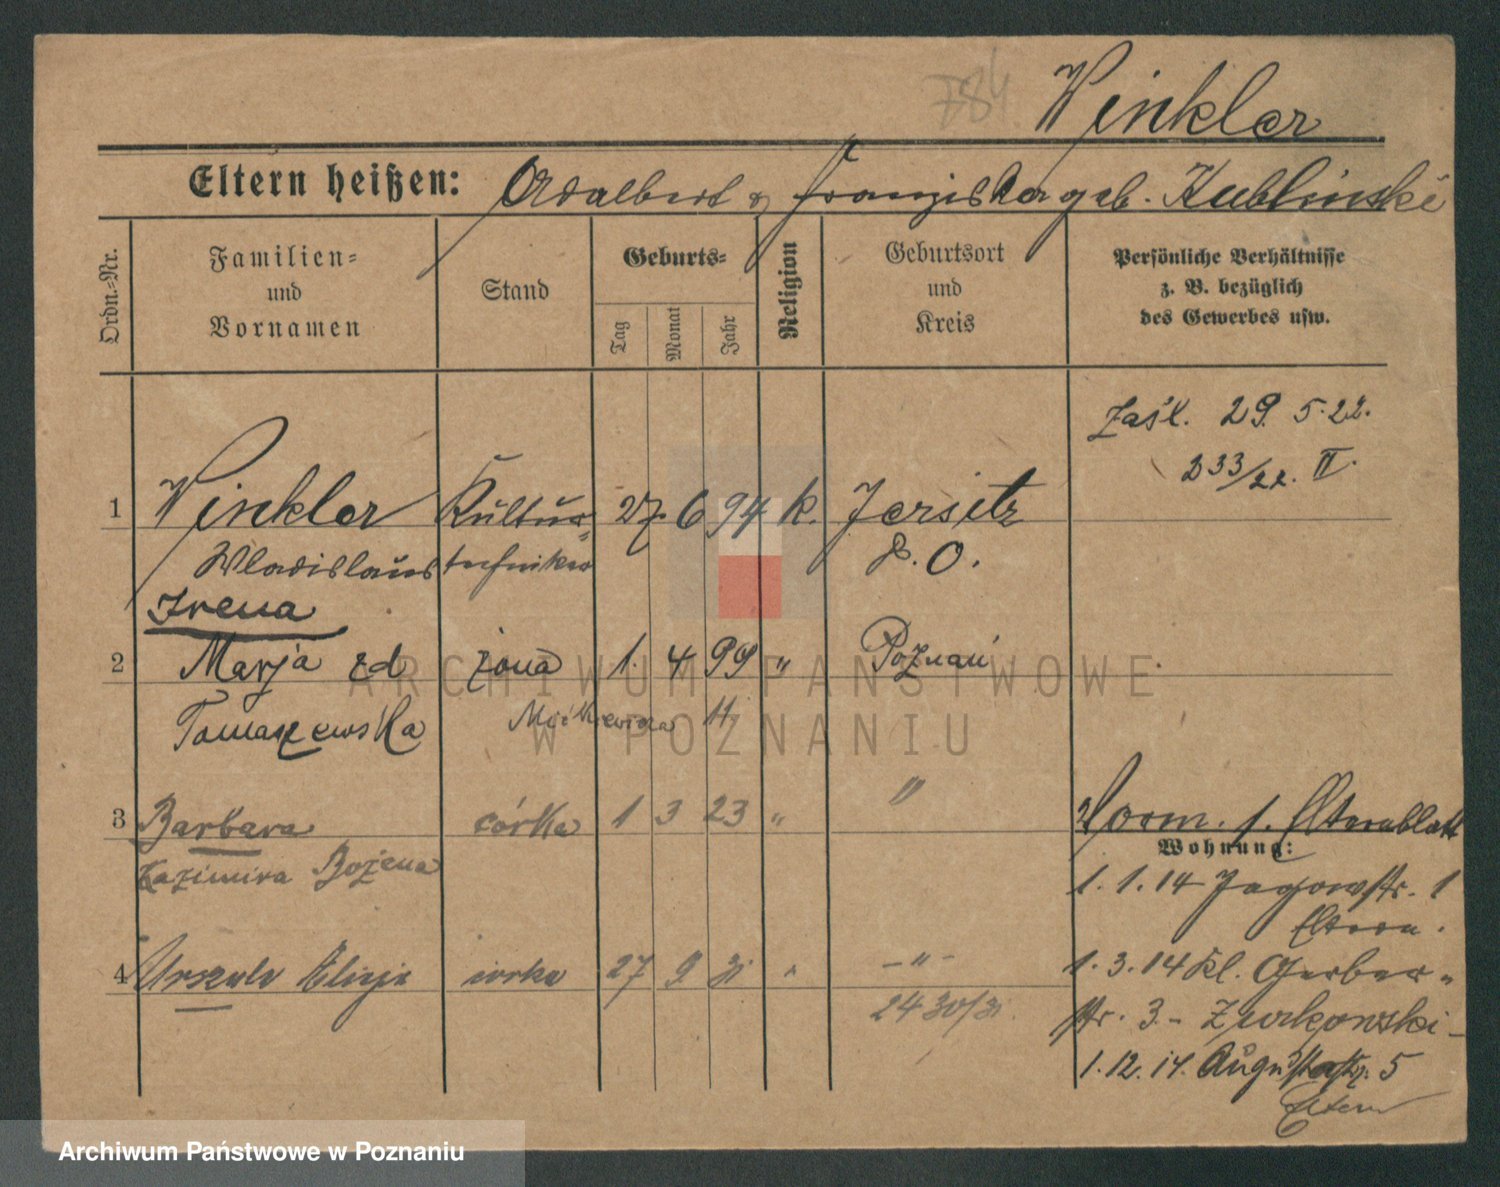 784
Winkler
Eltern heißen: Adalbert & Franziska geb. Kublinski
Ordn.-Nr.
Familien-
und
Vornamen
Stand
Geburts-
Tag
Monat
Jahr
Religion
Geburtsort
und
Kreis
Persönliche Verhältnisse
z. B. bezüglich
des Gewerbes usw.
Zaśl. 29. 5. 22.
233/22. II.
1 Winkler Kultur- 27. 6 94 k. Jersitz
Wladislaus techniker P. O.
Irena
2 Marja zd żona 1. 4 99 " Poznań
Tomaszewska
3 Barbara córka 1 3 23 " "
Kazimira Bożena
Vorm. s. Elternblatt
Wohnung:
1. 1. 14 Jagowstr. 1
Eltern.
4 Urszula Alicja córka 27 9 31 " - " -
2430/31.
1. 3. 14 Kl. Gerber-
str. 3 - Zurkowski -
1. 12. 14. Augustastr. 5
Eltern
ARCHIWUM PAŃSTWOWE
W POZNANIU
Archiwum Państwowe w Poznaniu